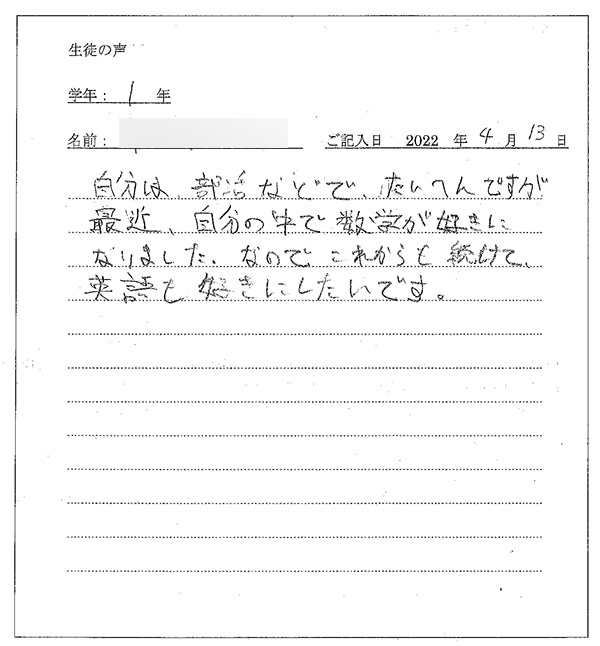 生徒の声
学年： 1 年
名前：
ご記入日 2022 年 4 月 13 日
自分は、部活などで、たいへんですが
最近、自分の中で数学が好きに
なりました、なので、これからも続けて、
英語も好きにしたいです。